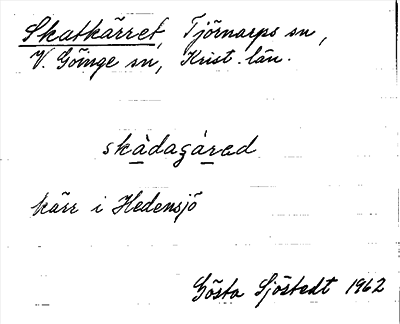 Skatkärret, Tjörnarps sn,
V. Göinge sn, Krist. län.
skàdagárəd
kärr i Hedensjö
Gösta Sjöstedt 1962